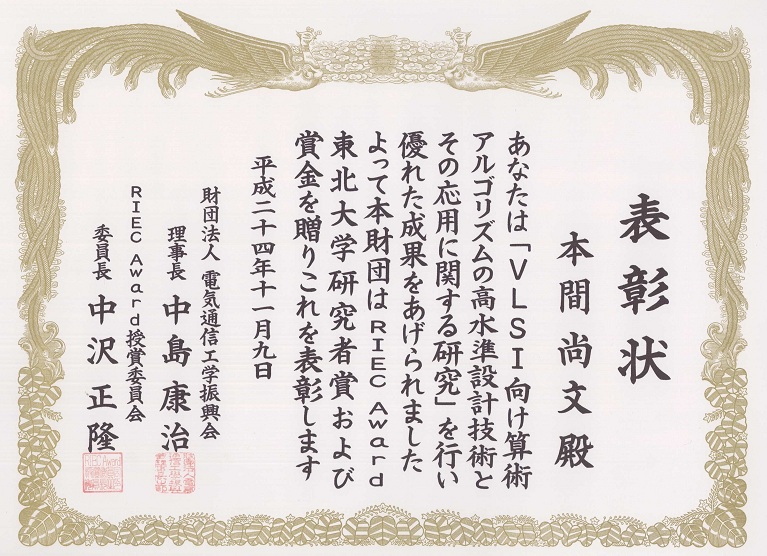 表彰状
本間尚文殿
あなたは「VLSI向け算術
アルゴリズムの高水準設計技術と
その応用に関する研究」を行い
優れた成果をあげられました
よって本財団はRIEC Award
東北大学研究者賞および
賞金を贈りこれを表彰します
平成二十四年十一月九日
財団法人 電気通信工学振興会
理事長 中島康治
RIEC Award授賞委員会
委員長 中沢正隆